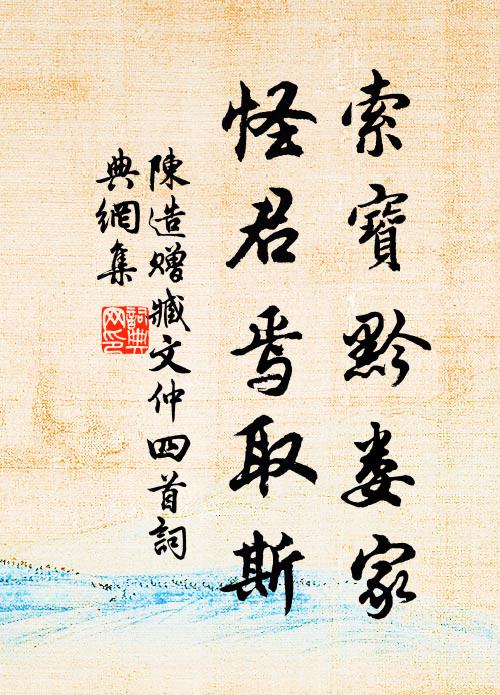 索寶黔婁家
怪君焉取斯
陳造贈臧文仲四首詞
典網集
詞典
网印